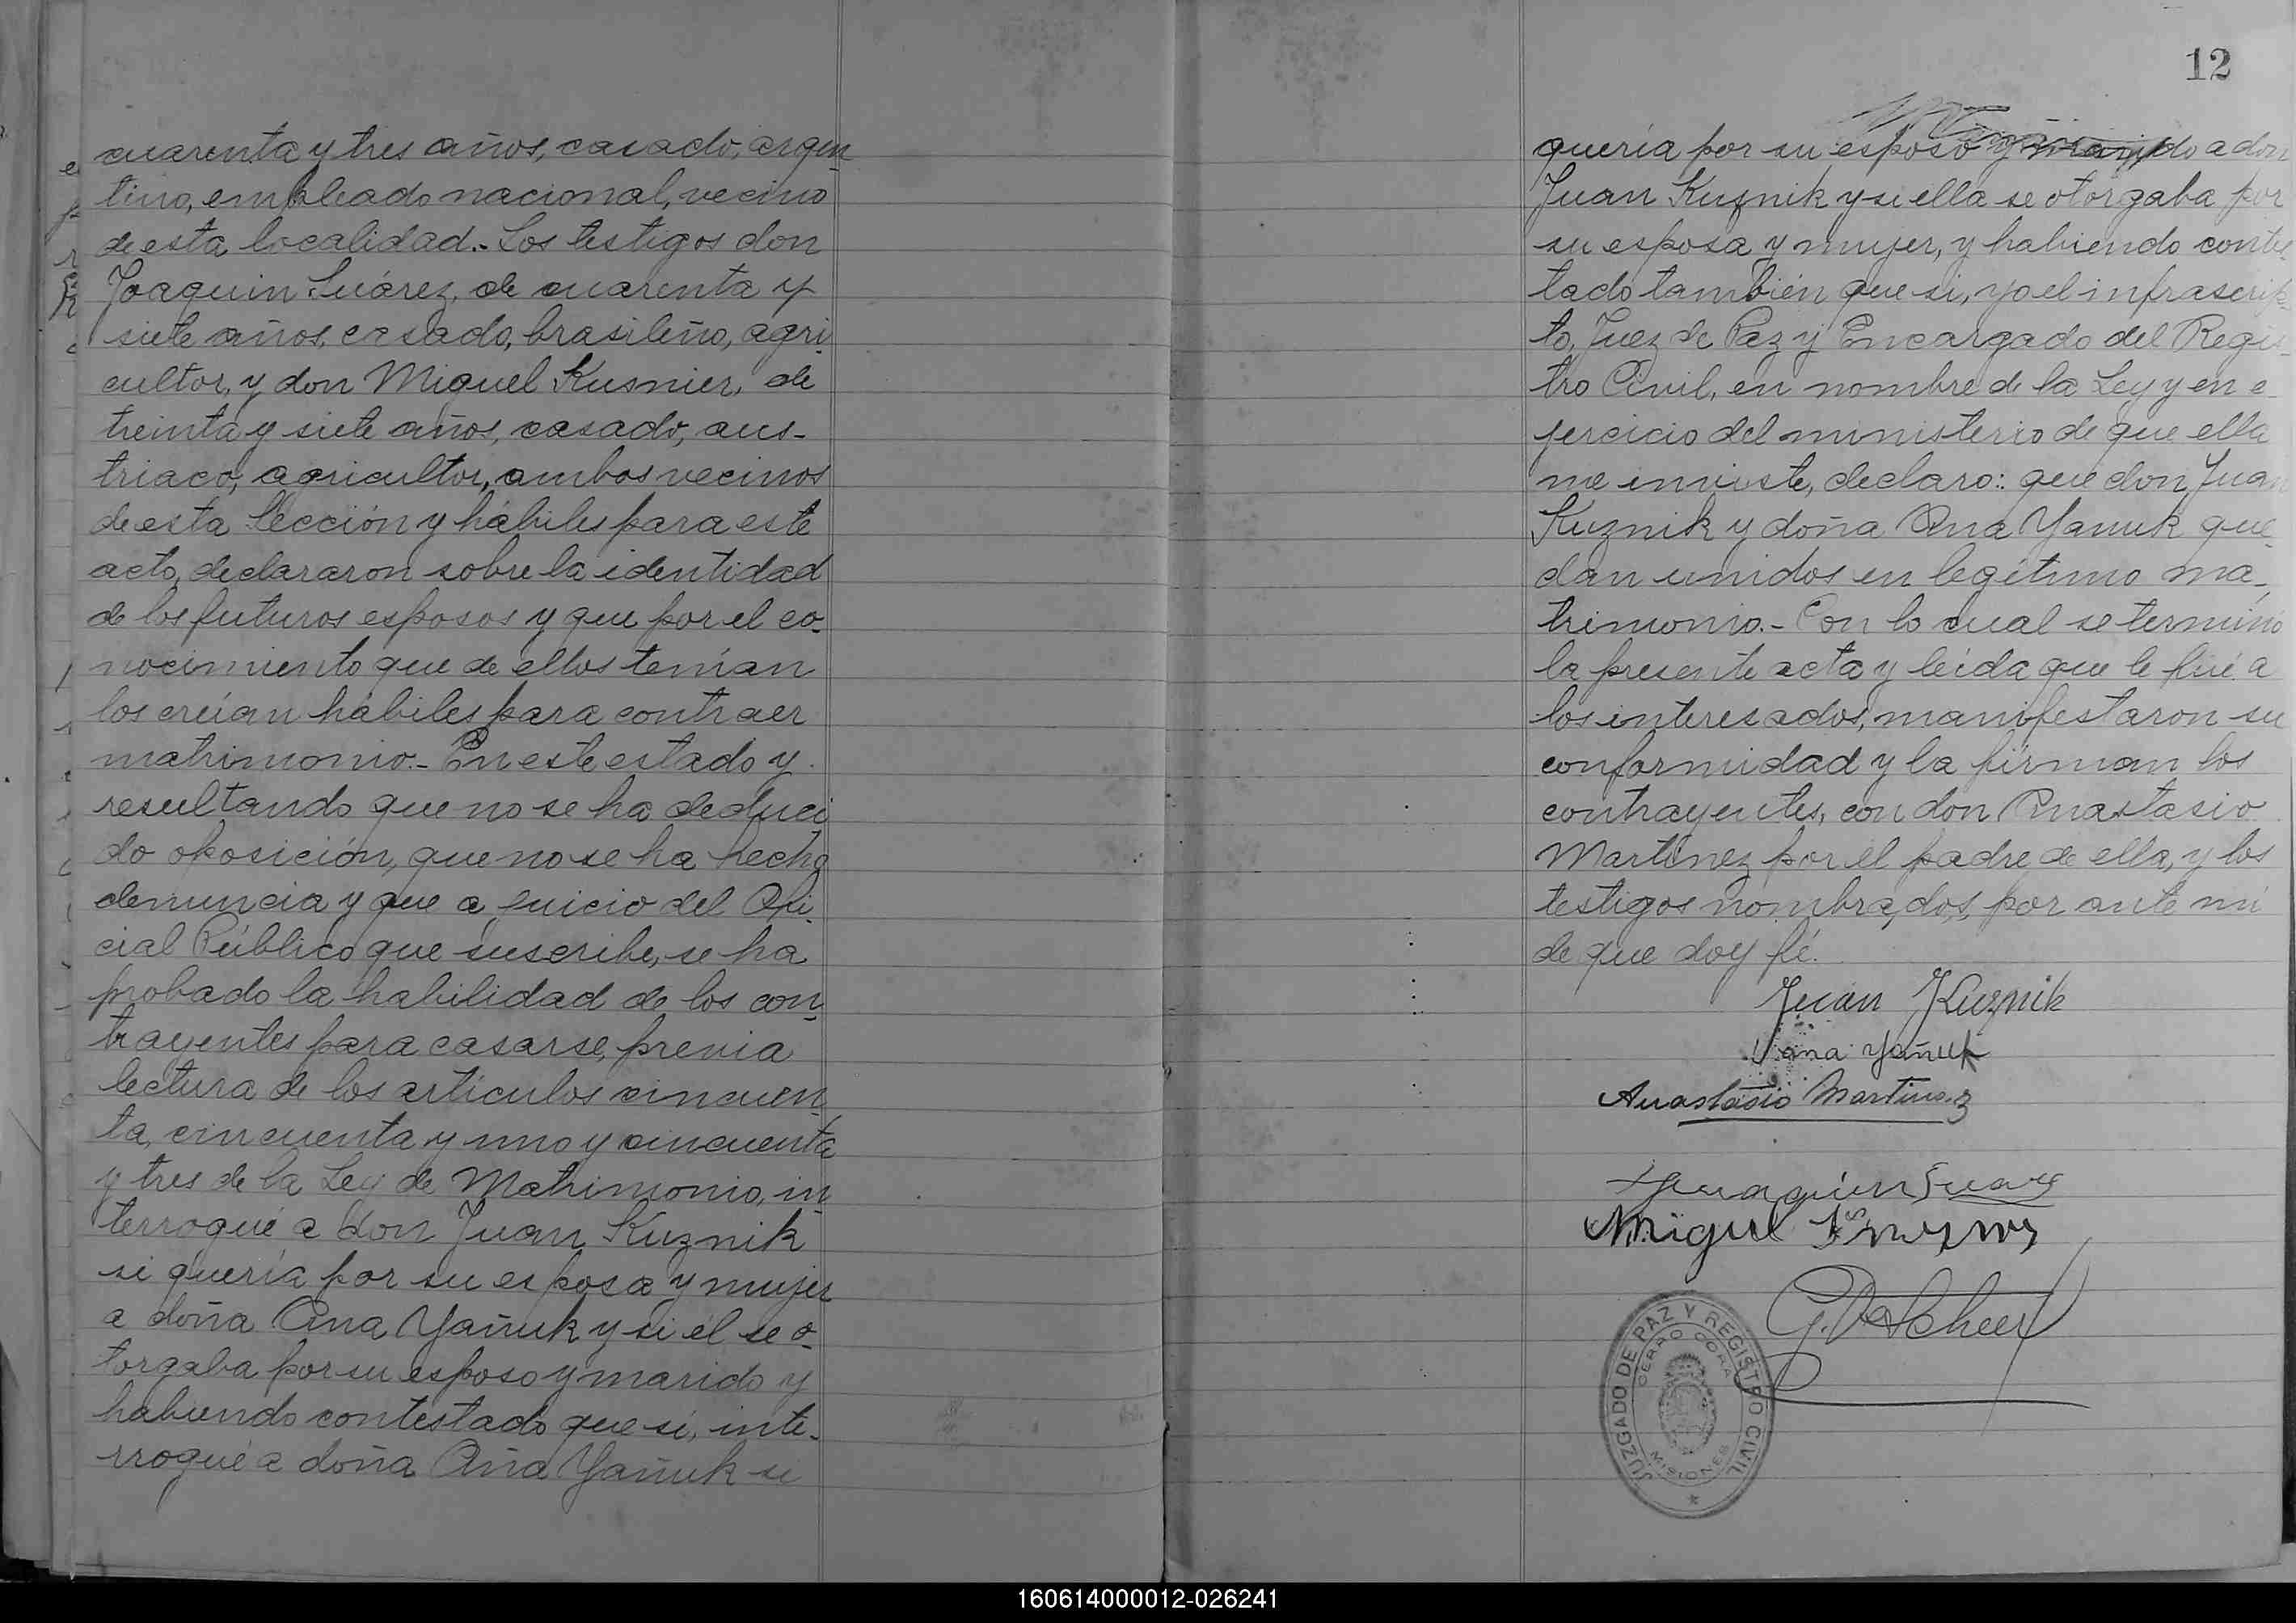 cuarenta y tres años, casado, argen
tino, empleado nacional, vecino
de esta localidad.- Los testigos don
Joaquin Suárez, de cuarenta y
siete años, casado, brasileño, agri
cultor, y don Miguel Kusnier, de
treinta y siete años, casado, aus-
triaco, agricultor, ambos vecinos
de esta Sección y hábiles para este
acto, declararon sobre la identidad
de los futuros esposos y que por el co-
nocimiento que de ellos tenían
los creían hábiles para contraer
matrimonio.- En este estado y
resultando que no se ha deduci
do oposición, que no se ha hecho
denuncia y que a juicio del Ofi-
cial Público que suscribe, se ha
probado la habilidad de los con-
trayentes para casarse, previa
lectura de los artículos cincuen-
ta, cincuenta y uno y cincuenta
y tres de la Ley de Matrimonio, in
terrogué a don Juan Kuznik
si quería por su esposa y mujer
a doña Ana Yañuk y si él se o-
torgaba por su esposo y marido y
habiendo contestado que sí, inte-
rrogué a doña Ana Yañuk si
12
quería por su esposo y marido a don
Juan Kuznik y si ella se otorgaba por
su esposa y mujer, y habiendo contes
tado también que si, yo el infrascrip
to, Juez de Paz y Encargado del Regis
tro Civil, en nombre de la Ley y en e-
jercicio del ministerio de que ella
me inviste, declaro: que don Juan
Kuznik y doña Ana Yanuk que-
dan unidos en legítimo ma-
trimonio.- Con lo cual se terminó
la presente acta y leída que le fué a
los interesados, manifestaron su
conformidad y la firman los
contrayentes, con don Anastasio
Martinez por el padre de ella, y los
testigos nombrados, por ante mi
de que doy fé.
Juan Kuznik
Yañuk
Anastasio Martinez
Juaquin Suarez
Miguel
G. Scheer
JUZGADO DE PAZ Y REGISTRO CIVIL
CERRO CORA
MISIONES
160614000012-026241